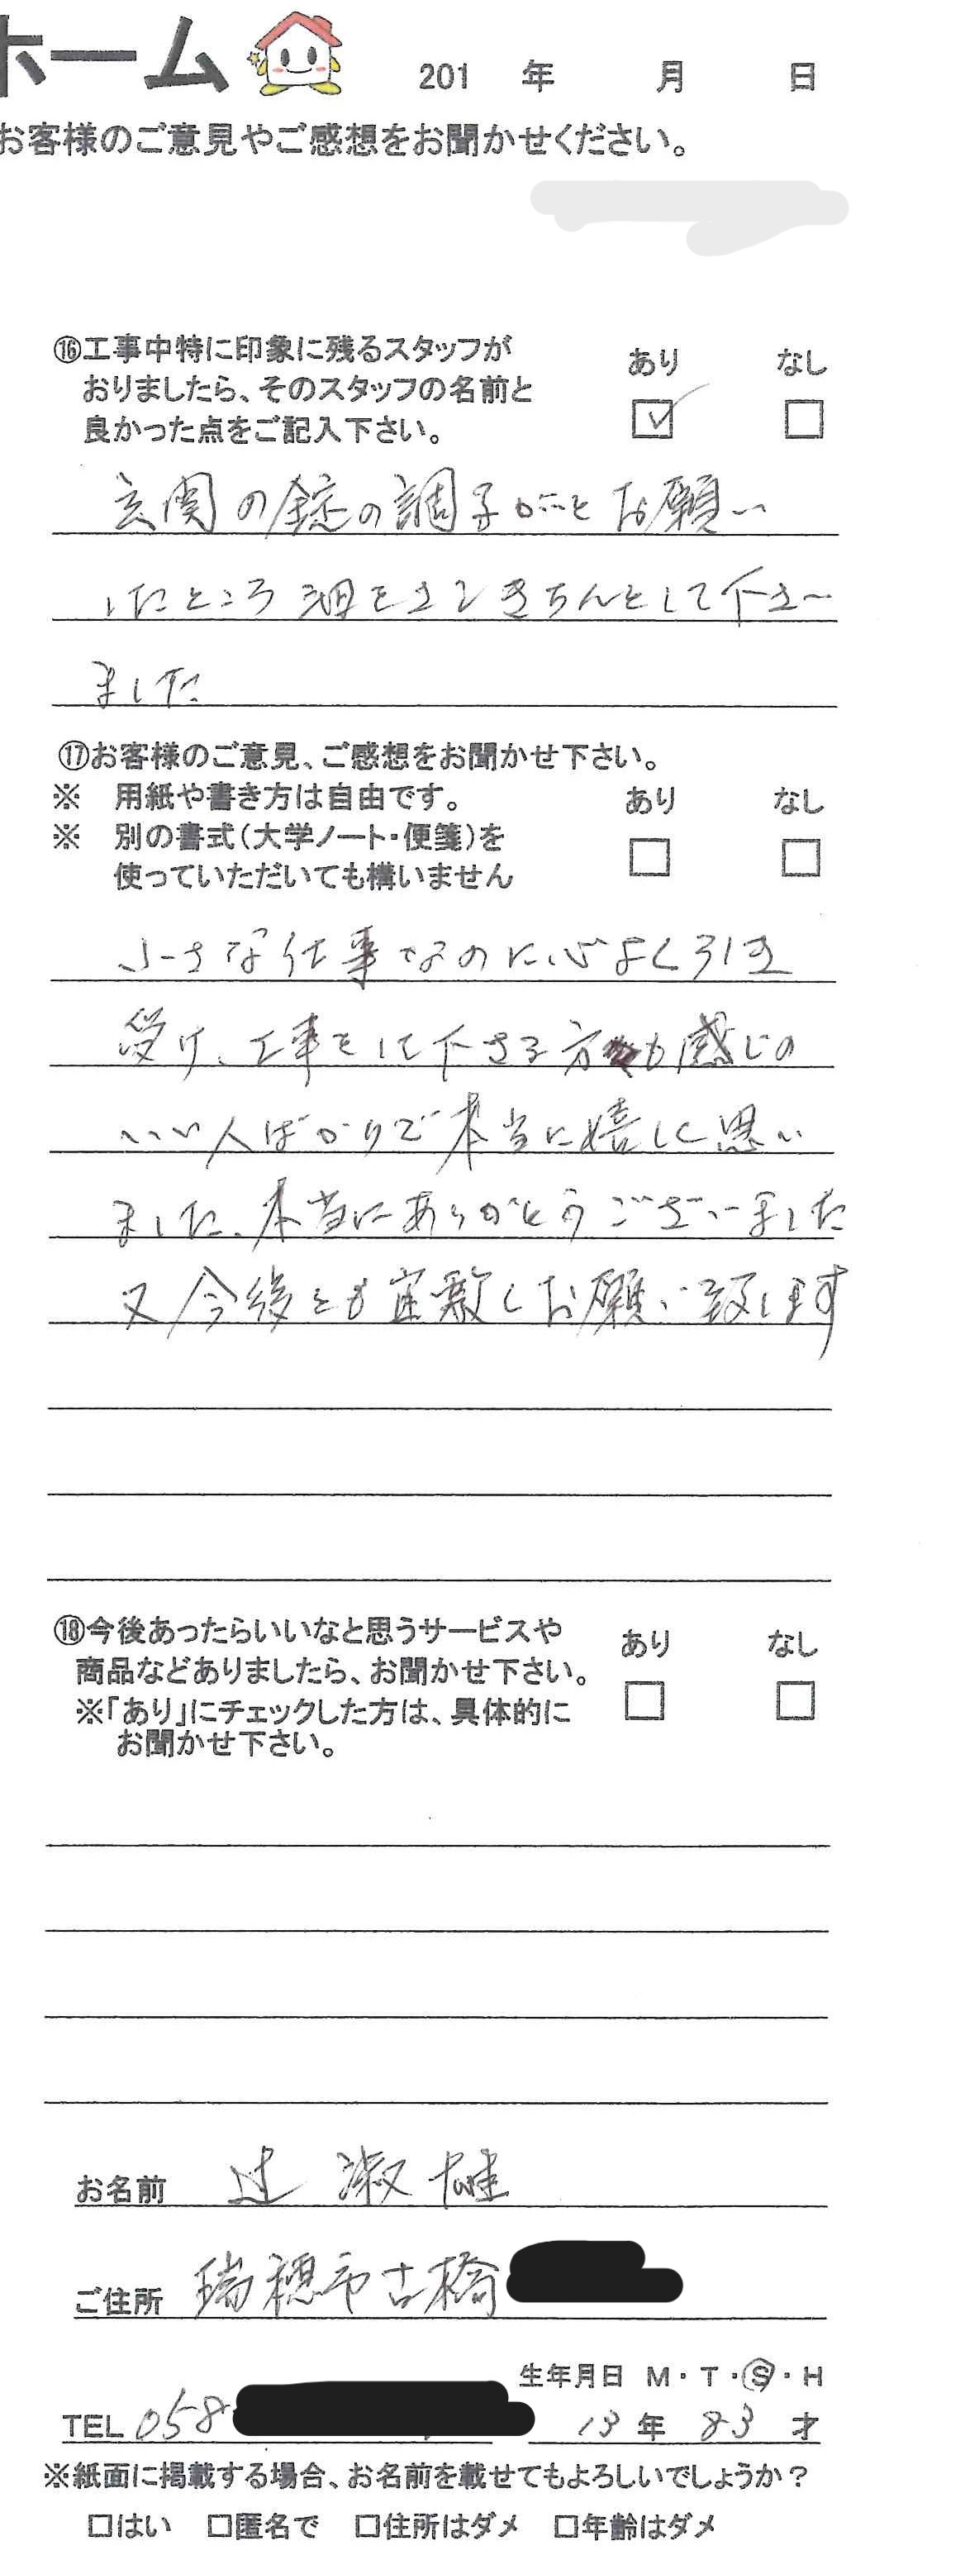 ホーム 201 年 月 日
お客様のご意見やご感想をお聞かせください。
⑯工事中特に印象に残るスタッフが
おりましたら、そのスタッフの名前と
良かった点をご記入下さい。
あり なし
玄関の錠の調子がことお願い
したところ 細 きちんとして下さい
ました
⑰お客様のご意見、ご感想をお聞かせ下さい。
※ 用紙や書き方は自由です。
※ 別の書式(大学ノート・便箋)を
使っていただいても構いません
あり なし
小さな仕事なのに心よく引き
受け、工事をして下さる方も感じの
いい人ばかりで本当に嬉しく思い
ました、本当にありがとうございました
又今後とも宜敷くお願い致します
⑱今後あったらいいなと思うサービスや
商品などありましたら、お聞かせ下さい。
※「あり」にチェックした方は、具体的に
お聞かせ下さい。
あり なし
お名前 辻 淑雄
ご住所 瑞穂市古橋
生年月日 M・T・S・H
TEL 058 13年 83才
※紙面に掲載する場合、お名前を載せてもよろしいでしょうか?
□はい □匿名で □住所はダメ □年齢はダメ